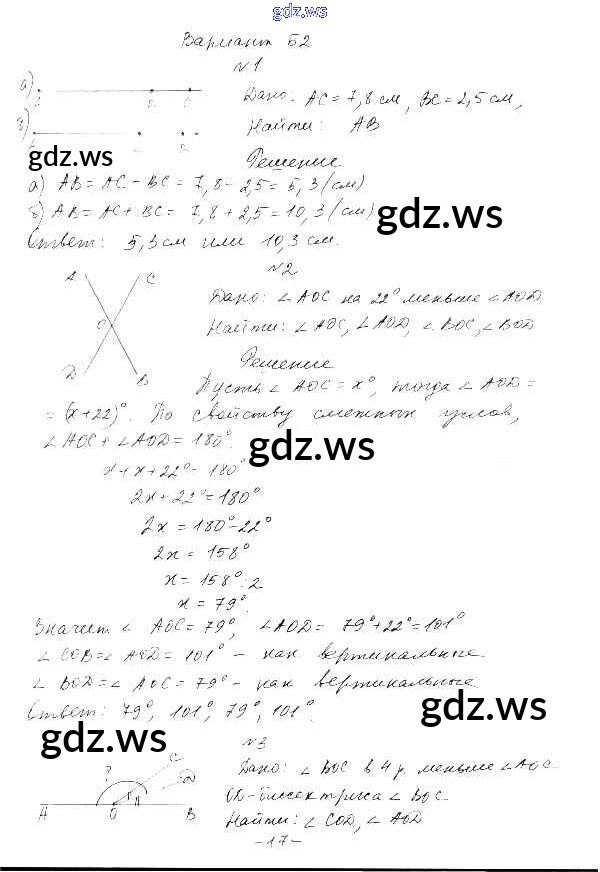 gdz.ws
Вариант Б2
№1
а)
Дано: AC = 7,8 см, BC = 2,5 см,
б)
Найти: AB
gdz.ws
Решение
а) AB = AC - BC = 7,8 - 2,5 = 5,3 (см)
б) AB = AC + BC = 7,8 + 2,5 = 10,3 (см)
gdz.ws
Ответ: 5,3 см или 10,3 см.
№2
A C
Дано: ∠AOC на 22° меньше ∠AOD
O
Найти: ∠AOC, ∠AOD, ∠BOC, ∠BOD
D B
Решение
Пусть ∠AOC = x°, тогда ∠AOD =
= (x+22)°. По свойству смежных углов,
∠AOC + ∠AOD = 180°.
gdz.ws
x + x + 22° = 180°
2x + 22° = 180°
2x = 180° - 22°
2x = 158°
x = 158° : 2
x = 79°.
Значит ∠AOC = 79°, ∠AOD = 79° + 22° = 101°
∠COB = ∠AOD = 101° - как вертикальные.
∠BOD = ∠AOC = 79° - как вертикальные
Ответ: 79°, 101°, 79°, 101°.
gdz.ws
gdz.ws
№3
C
Дано: ∠BOC в 4 р. меньше ∠AOC
? D
OD - биссектриса ∠BOC.
A O B
Найти: ∠COD, ∠AOD
-17-